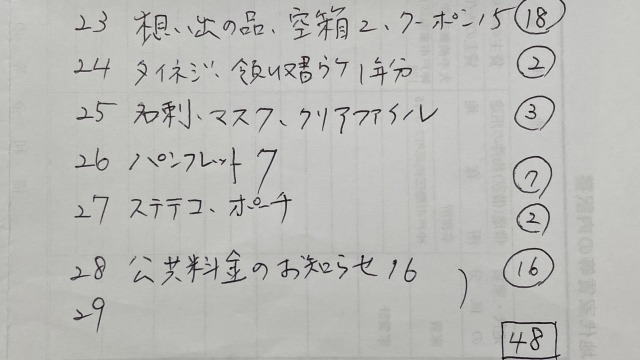 23 想い出の品、空箱2、クーポン15 18
24 タイネジ、領収書らケ1年分 2
25 名刺、マスク、クリアファイル 3
26 パンフレット7 7
27 ステテコ、ポーチ 2
28 公共料金のお知らせ16 ) 16
29
48